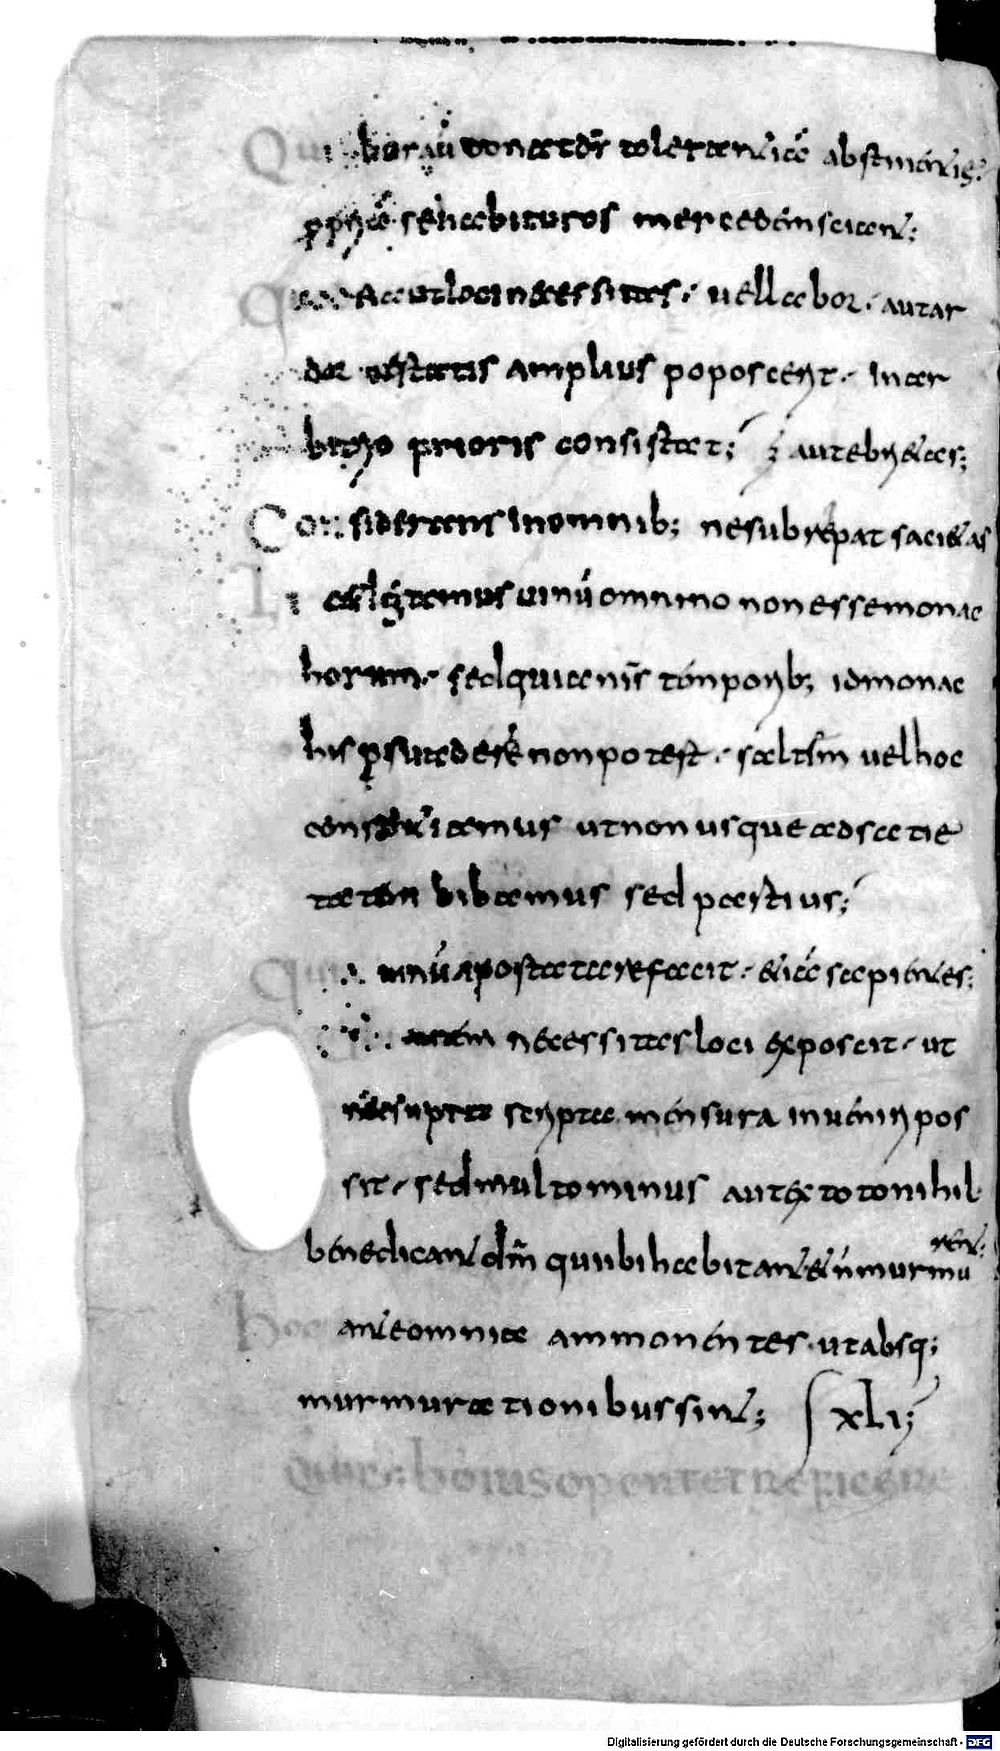 Qui bor aū donat d̄s tolerantiā abstinentię;
ꝓpriā se habituros mercedem sciant;
quod aut loci necessitas; vel labor; aut ar
dor ęstatis amplius poposcerit; in ar
bitrio prioris consistat;
Considerans in omnib; ne subrepat sacietas
Li &legamus vinū omnino non esse monac
horum; sed quia nr̄is temporib; id monac
his ꝑsuaderi non potest; saltim vel hoc
consentiamus ut non usque ad satie
tatem bibamus sed parstius;
quia vinū apostatare facit; etiā sapientes;
autem necessitas loci exposcit; ut
nec supra scripta mensura inveniri pos
sit; sed multo minus aut ex toto nihil
benedicant dm̄ qui ibi habitant & n̄ murmu
rent;
hoc ante omnia ammonentes; ut absq;
murmurationibus sint; XLI;
quibus horis oportet reficere
Digitalisierung gefördert durch die Deutsche Forschungsgemeinschaft - DFG